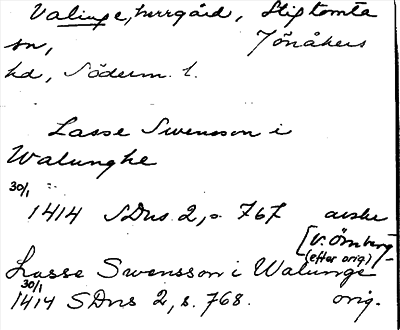 Valinge, herrgård, Stigtomta
sn, Jönåkers
hd, Söderm. l.
Lasse Swensson i
Walunghe
30/1
1414 SDns 2, s. 767 avskr
[v. Örnberg
(efter orig)]
Lasse Swensson i Walunge
30/1
1414 SDns 2, s. 768. orig.